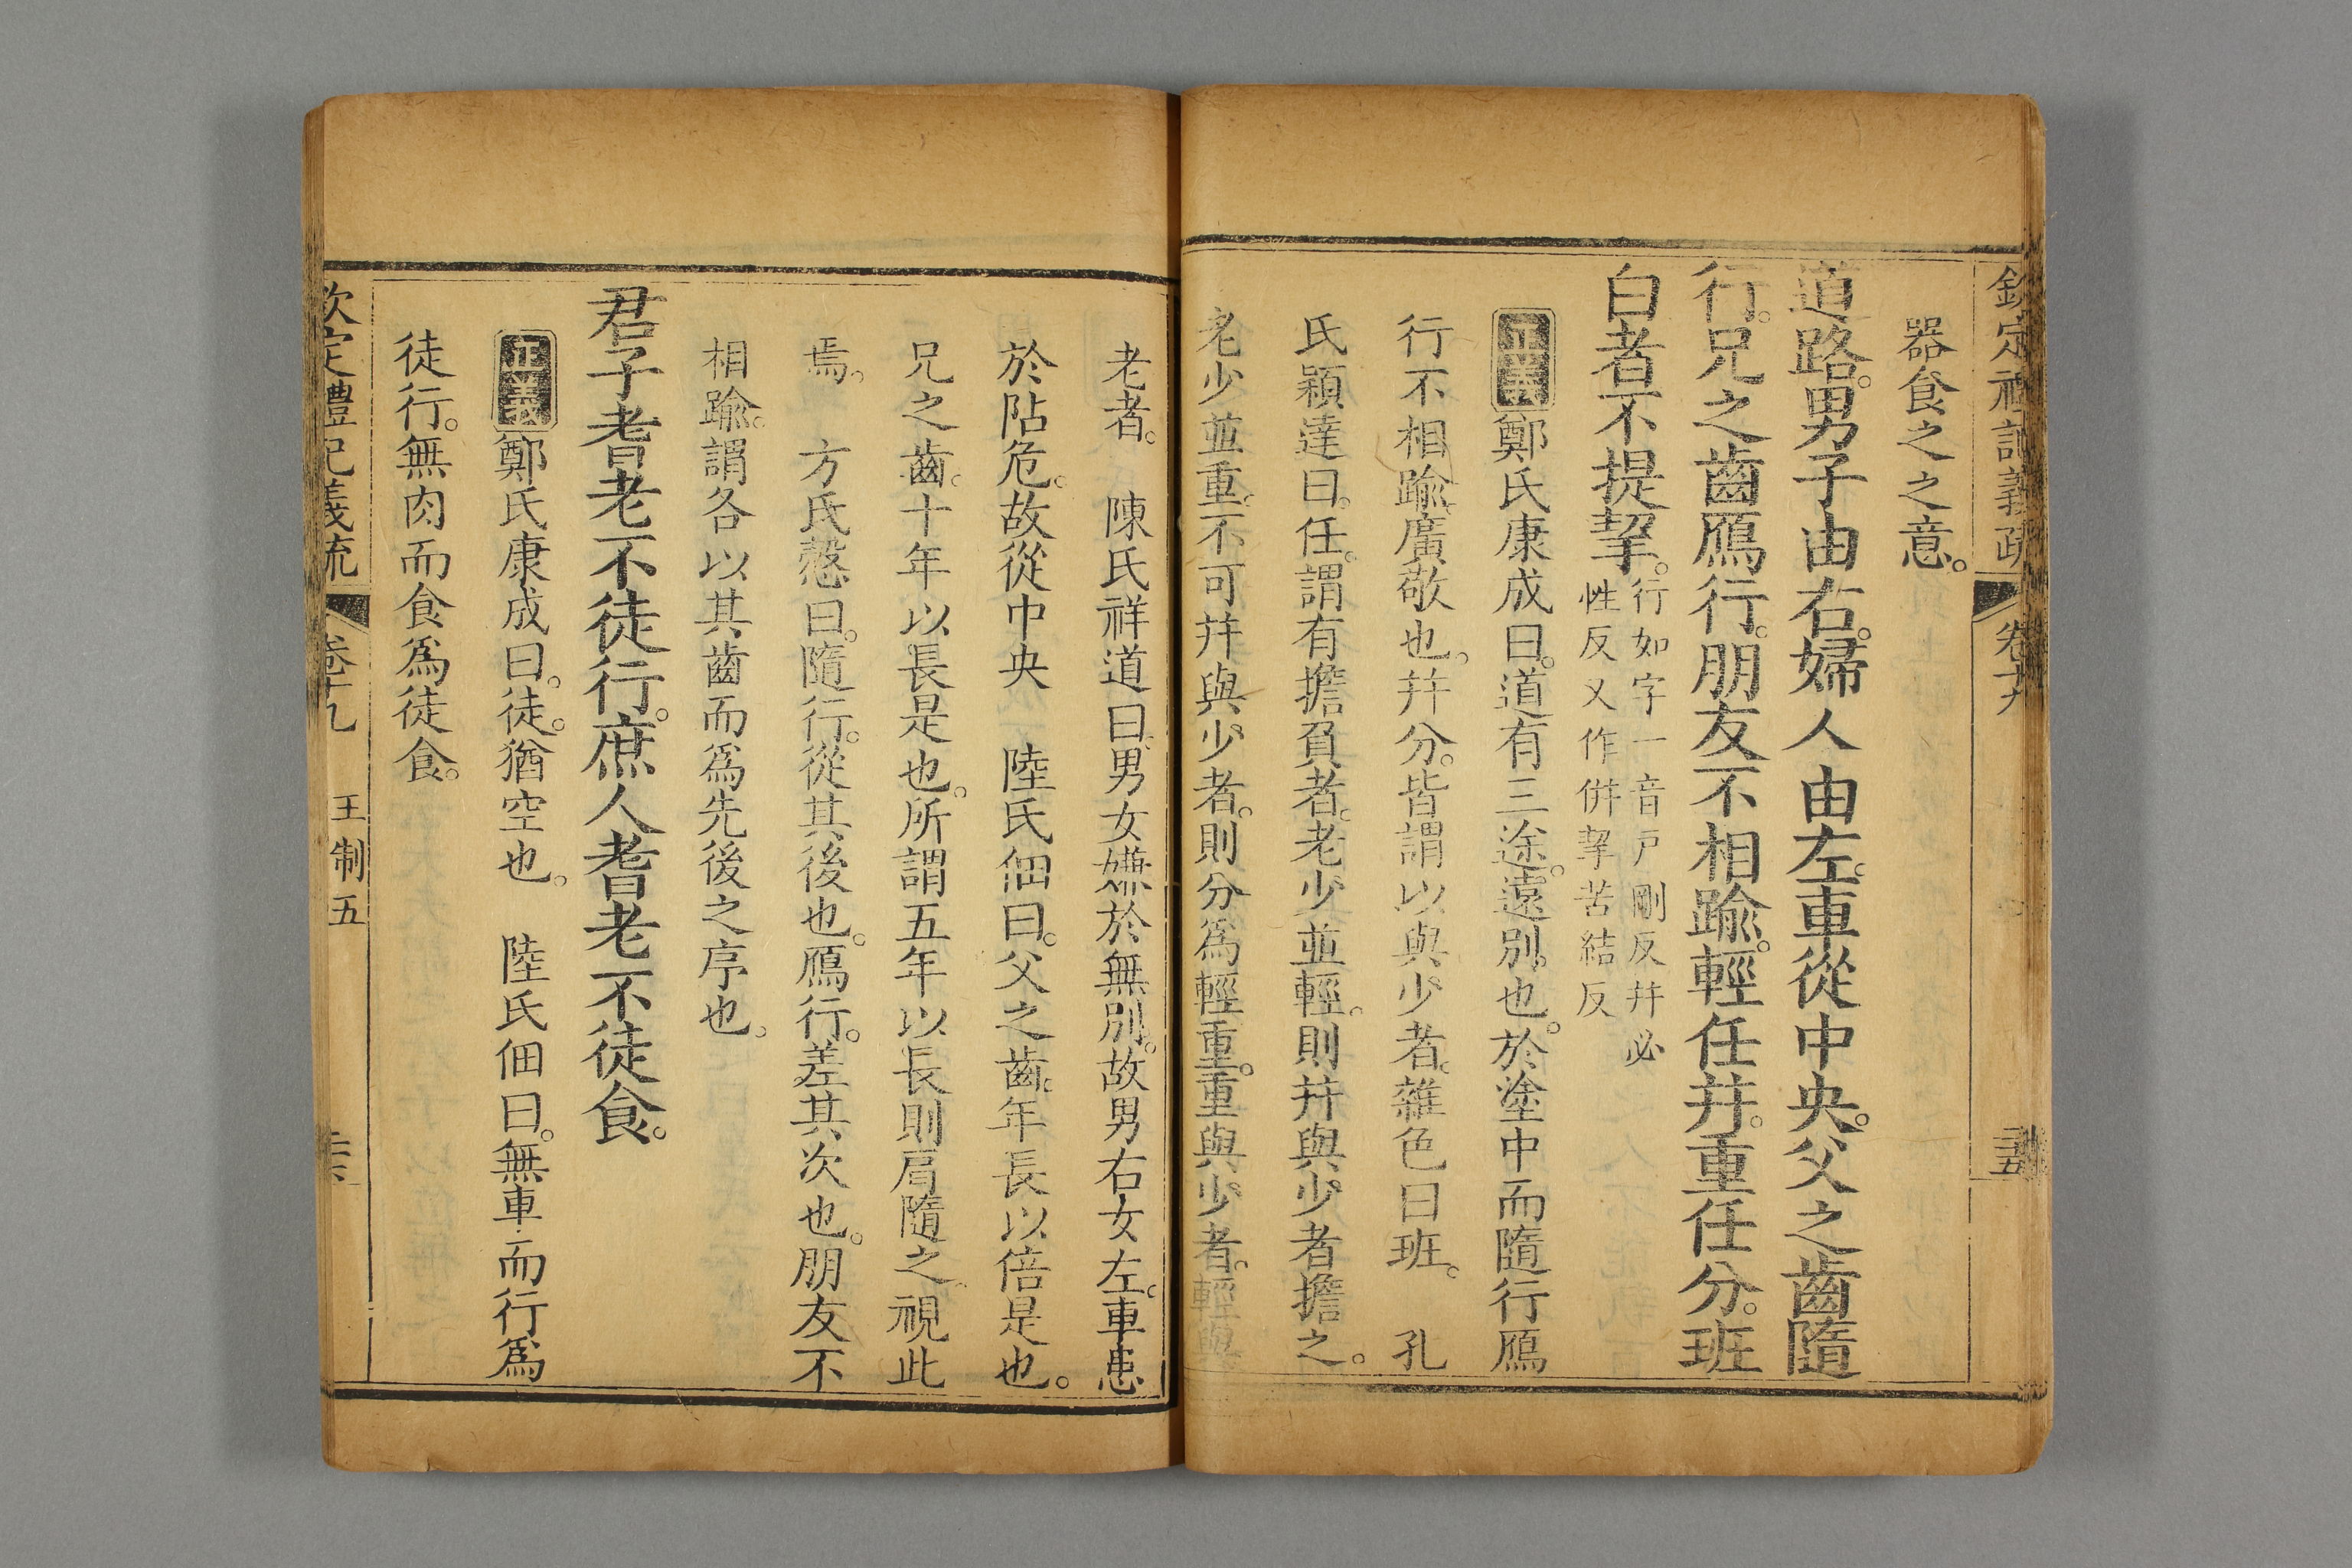 欽定禮記義疏 卷十九
器食之之意。
道路。男子由右。婦人由左。車從中央。父之齒隨
行。兄之齒鴈行。朋友不相踰。輕任幷。重任分。班
白者不提挈。行如字一音戶剛反幷必
性反又作倂挈苦結反
正義鄭氏康成曰。道有三途。遠別也。於塗中而隨行鴈
行不相踰。廣敬也。幷分。皆謂以與少者。雜色曰班。 孔
氏穎達曰。任。謂有擔負者。老少並輕。則幷與少者擔之。
老少並重。不可幷與少者。則分爲輕重。重與少者。輕與
老者。 陳氏祥道曰。男女嫌於無別。故男右女左。車患
於阽危。故從中央 陸氏佃曰。父之齒。年長以倍是也。
兄之齒。十年以長是也。所謂五年以長則肩隨之。視此
焉。 方氏慤曰。隨行。從其後也。鴈行。差其次也。朋友不
相踰。謂各以其齒而爲先後之序也。
君子耆老不徒行。庶人耆老不徒食。
正義鄭氏康成曰。徒。猶空也。 陸氏佃曰。無車而行爲
徒行。無肉而食爲徒食。
欽定禮記義疏 卷十九 王制五